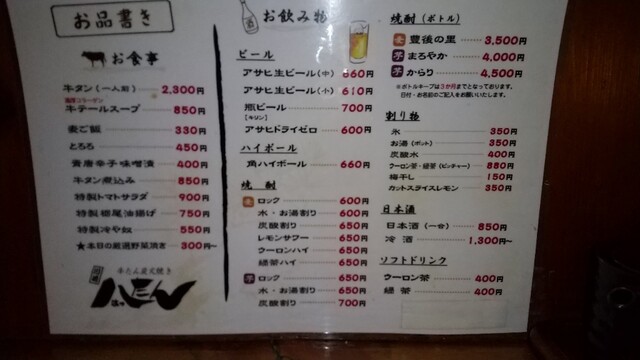 お品書き
お食事
牛タン(一人前) 2,300円
牛テールスープ 850円
麦ご飯 330円
とろろ 450円
青唐辛子味噌漬 400円
牛タン煮込み 850円
特製トマトサラダ 900円
特製栃尾油揚げ 750円
特製冷や奴 550円
★本日の厳選野菜焼き 300円~
牛たん炭火焼き
お飲み物
ビール
アサヒ生ビール(中) 660円
アサヒ生ビール(小) 610円
瓶ビール 700円
[キリン]
アサヒドライゼロ 600円
ハイボール
角ハイボール 660円
焼酎
麦 ロック 600円
水・お湯割り 600円
炭酸割り 650円
レモンサワー 650円
ウーロンハイ 650円
緑茶ハイ 650円
芋 ロック 650円
水・お湯割り 650円
炭酸割り 700円
焼酎(ボトル)
麦 豊後の里 3,500円
芋 まろやか 4,000円
芋 からり 4,500円
※ボトルキープは3か月までとなっております。
日付・お名前のご記入をお願いいたします。
割り物
氷 350円
お湯(ポット) 350円
炭酸水 400円
ウーロン茶・緑茶(ピッチャー) 880円
梅干し 150円
カットスライスレモン 350円
日本酒
日本酒(一合) 850円
冷酒 1,300円~
ソフトドリンク
ウーロン茶 400円
緑茶 400円